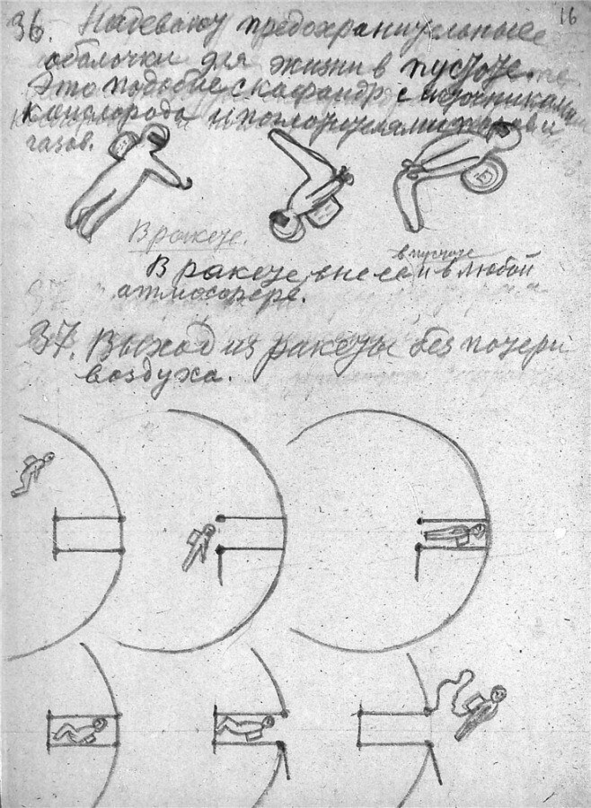 16
36. Надеваю предохранительные
оболочки для жизни в пустоте.
Это подобие скафандр с источниками
кислорода и поглотителями
газов.
В ракете.
в пустоте
В ракете, вне ея и в любой
атмосфере.
37. Выход из ракеты без потери
воздуха.